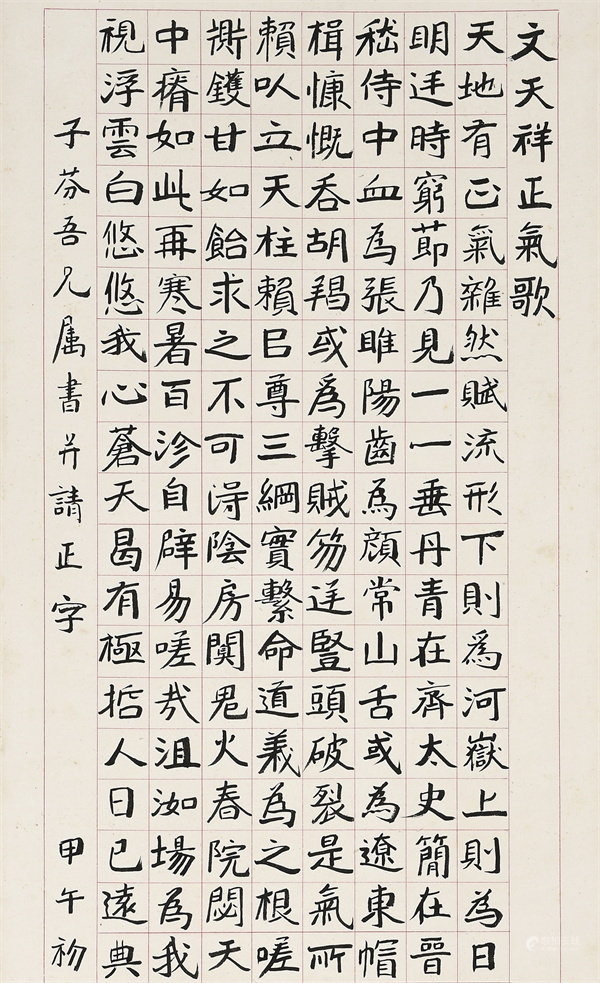 文天祥正氣歌
天地有正氣雜然賦流形下則為河嶽上則為日
明廷時窮節乃見一一垂丹青在齊太史簡在晉
嵇侍中血為張睢陽齒為顏常山舌或為遼東帽
楫慷慨吞胡羯或為擊賊笏逆豎頭破裂是氣所
賴以立天柱賴以尊三綱實繫命道義為之根嗟
撕鑊甘如飴求之不可得陰房闃鬼火春院閟天
中瘠如此再寒暑百沴自辟易嗟哉沮洳場為我
視浮雲白悠悠我心蒼天曷有極哲人日已遠典
子芬吾兄属書并請正字 甲午初